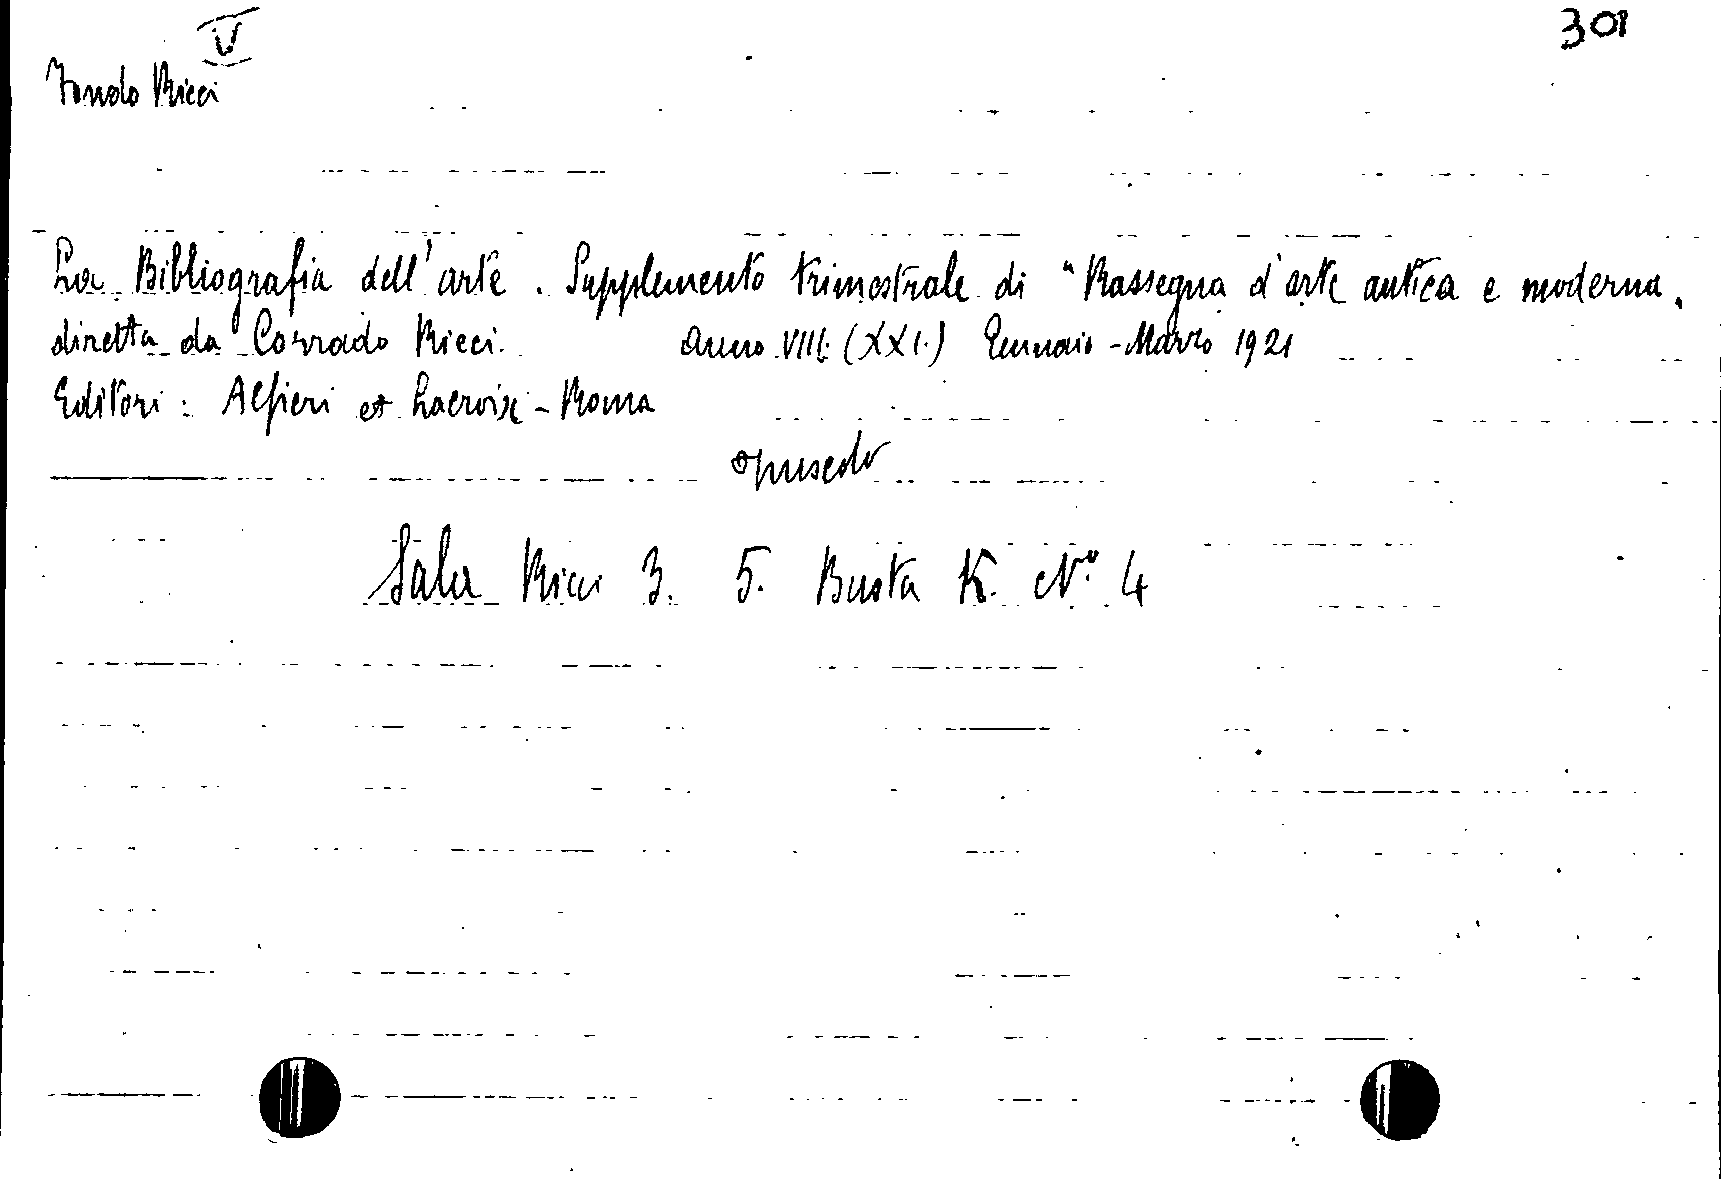 V
301
Fondo Ricci
La Bibliografia dell'arte. Supplemento trimestrale di "Rassegna d'arte antica e moderna,
diretta da Corrado Ricci. Anno VIII. (XXI.) Gennaio - Marzo 1921
Editori: Alfieri et Lacroix - Roma
opuscolo
Sala Ricci 3. 5. Busta K. No. 4